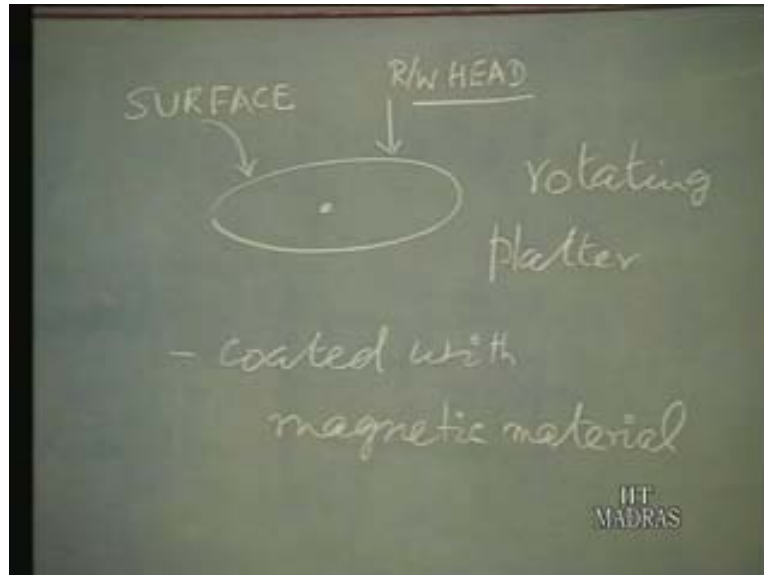 R/W HEAD
SURFACE
rotating
platter
- coated with
magnetic material
IIT
MADRAS